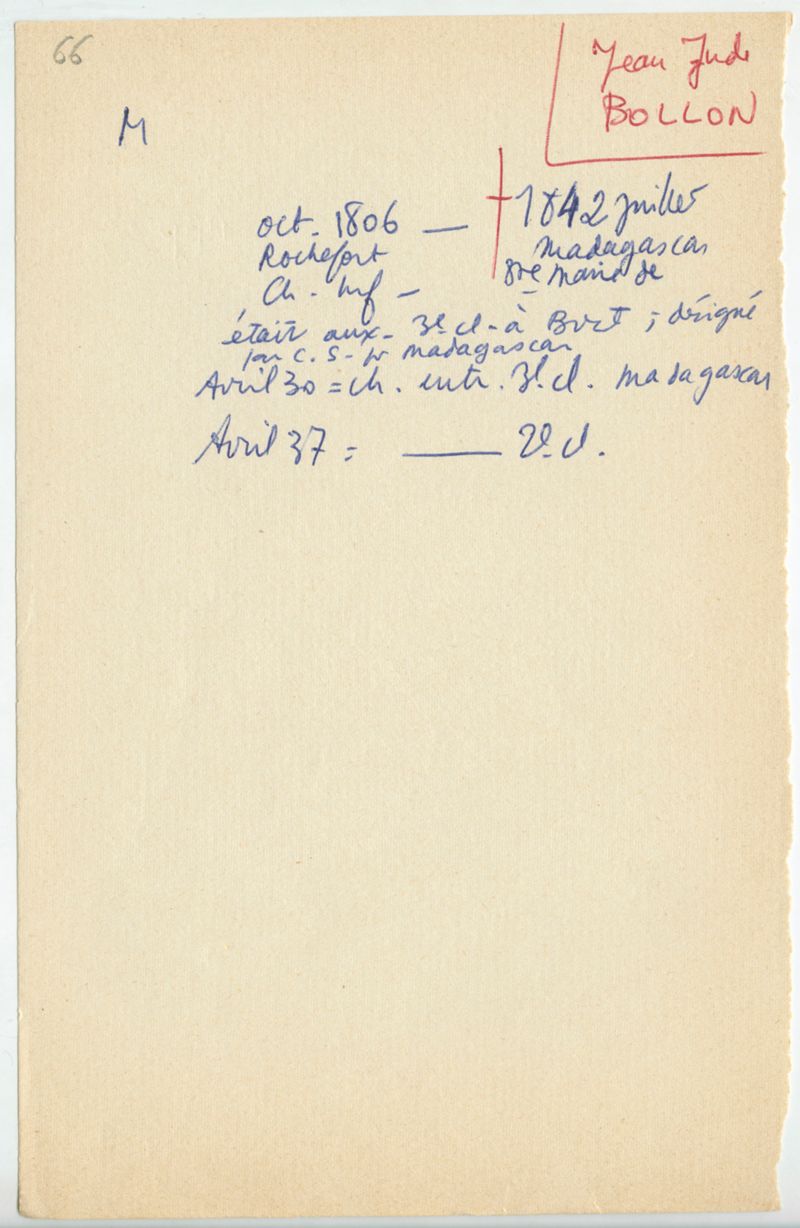 66
Jean Jude
BOLLON
M
oct. 1806 — † 1842 juillet
Rochefort Madagascar
Ste Marie de
Ch. inf –
était aux. 3e cl. à Brest ; désigné
par C. S. pr Madagascar
Avril 30 = ch. entr. 3e cl. Madagascar
Avril 37 = —— 2e cl.